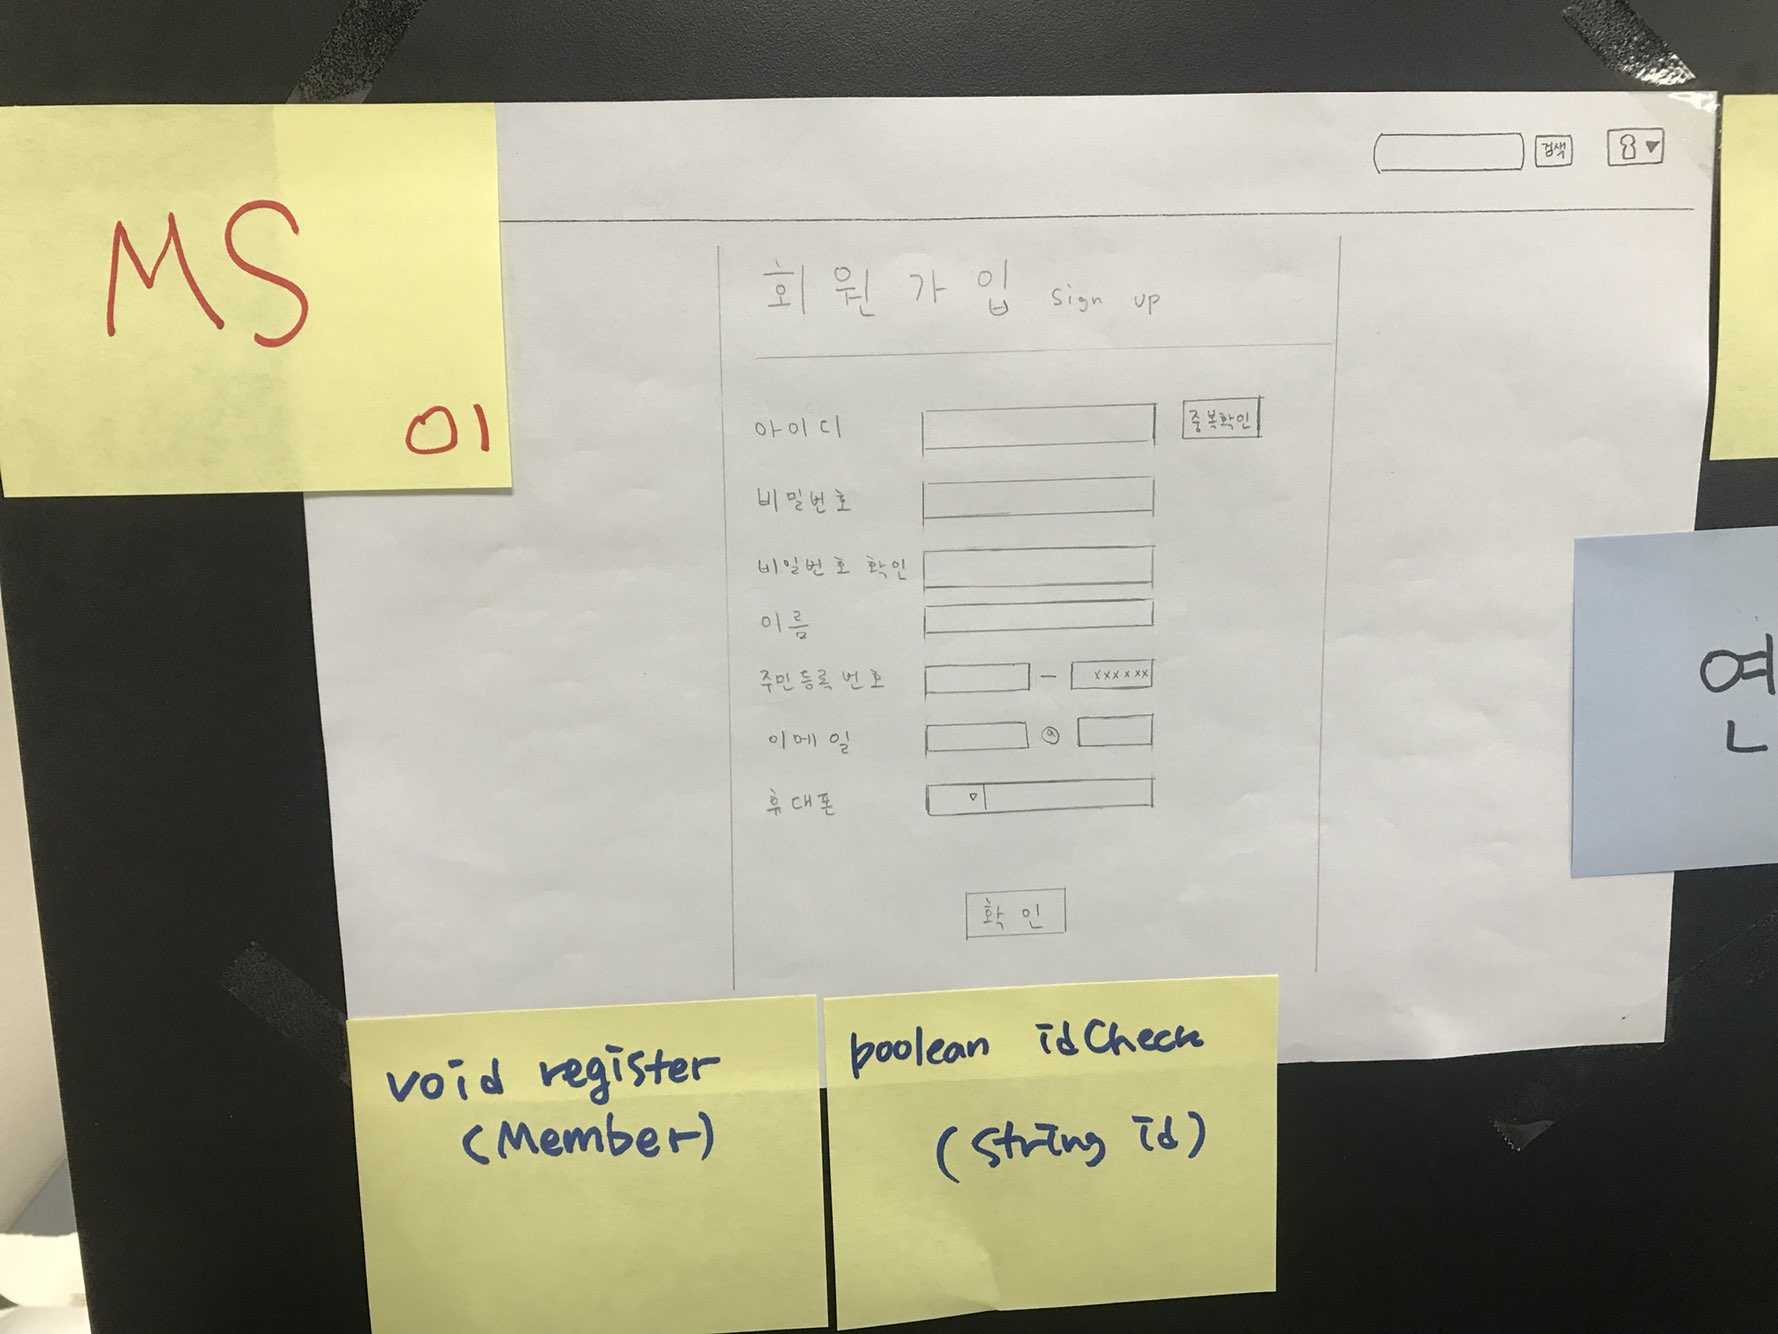 MS
01
검색
회원가입 sign up
아이디
중복확인
비밀번호
비밀번호 확인
이름
주민등록번호 - xxxxxx
이메일 @
휴대폰
확인
void register
(Member)
boolean idCheck
(String id)
연